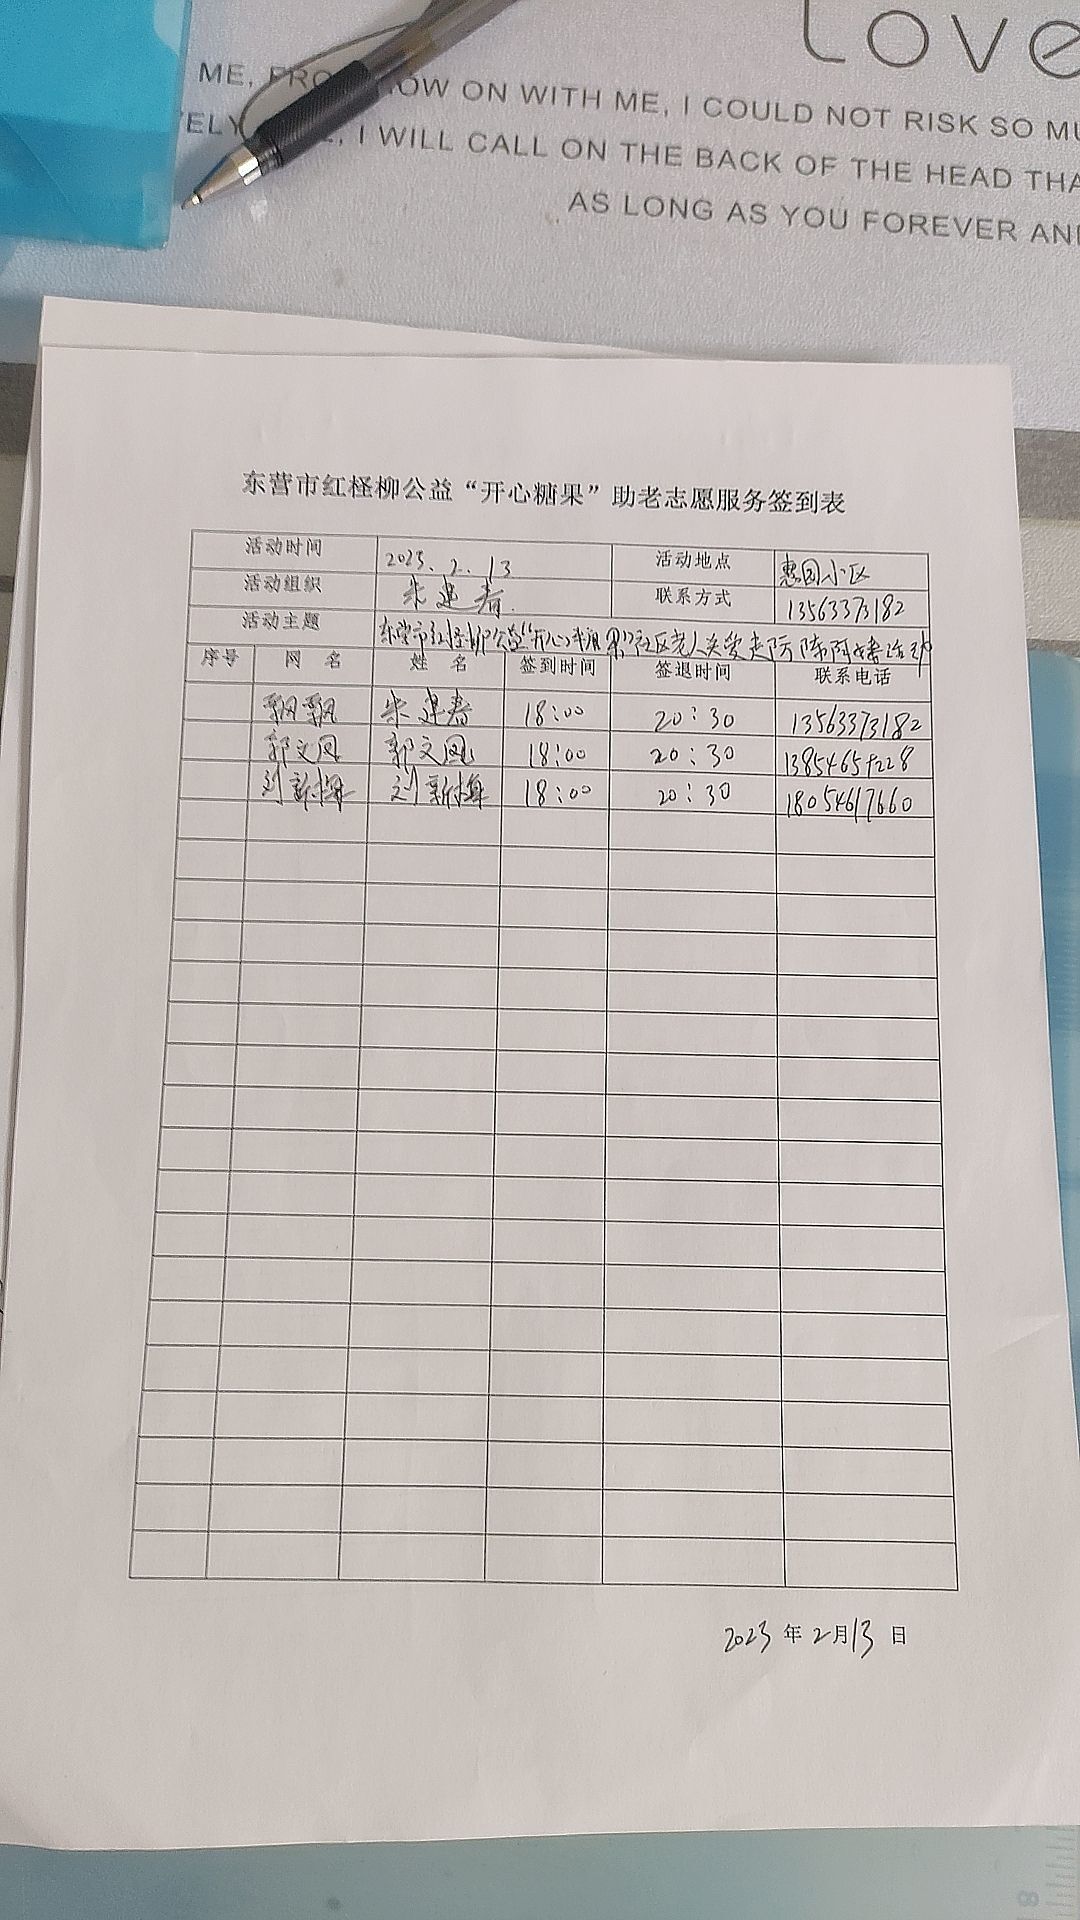 Love
ME, FRO NOW ON WITH ME, I COULD NOT RISK SO MU
ELY I WILL CALL ON THE BACK OF THE HEAD THA
AS LONG AS YOU FOREVER AN
东营市红柽柳公益“开心糖果”助老志愿服务签到表
活动时间 2023.2.13 活动地点 惠园小区
活动组织 朱建春 联系方式 13563373182
活动主题 东营市红柽柳公益“开心糖果”社区老人关爱走访陈阿姨活动
序号 网名 姓名 签到时间 签退时间 联系电话
飘飘 朱建春 18:00 20:30 13563373182
郭文凤 郭文凤 18:00 20:30
刘新梅 刘新梅 18:00 20:30 18054617660
2023年2月13日
8